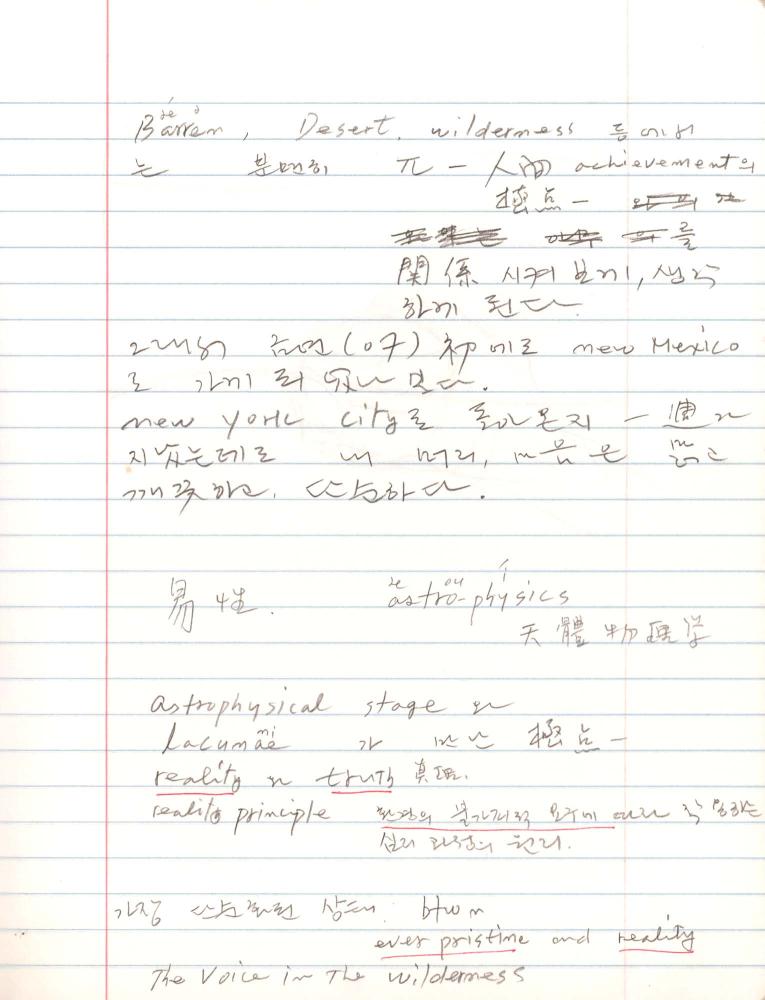 Barren, Desert, wilderness 등에서
는 분명히 π — 人間 achievement의
極点 —
를
関係 시켜 보게, 생각
하게 된다.
그래서 금년(07) 初에도 new Mexico
로 가게 되 였나 보다.
new york city로 돌아온지 一週가
지났는데도 내 머리, 마음은 맑고
깨끗하고, 단순하다.
易性. astro-physics
天體物理学
astrophysical stage와
lacunae가 만난 極点 —
reality와 truth 真理.
reality principle 환경의 불가피적 요구에 따라 작용하는
심리 과정의 원리.
가장 단순화된 상태: btwn
ever pristine and reality
The Voice in The wilderness